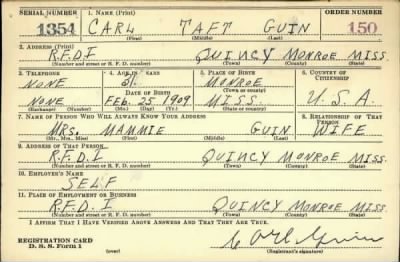 SERIAL NUMBER 1. NAME (Print) ORDER NUMBER
1354 CARL TAFT GUIN 150
(First) (Middle) (Last)
2. ADDRESS (Print)
R.F.D.I QUINCY MONROE MISS.
(Number and street or R. F. D. number) (Town) (County) (State)
3. TELEPHONE 4. AGE IN YEARS 5. PLACE OF BIRTH 6. COUNTRY OF CITIZENSHIP
NONE 31. MONROE
DATE OF BIRTH (Town or county)
NONE FEB. 25 1909 MISS. U.S.A.
(Exchange) (Number) (Mo.) (Day) (Yr.) (State or country)
7. NAME OF PERSON WHO WILL ALWAYS KNOW YOUR ADDRESS 8. RELATIONSHIP OF THAT PERSON
MRS. MAMMIE GUIN WIFE
(Mr., Mrs., Miss) (First) (Middle) (Last)
9. ADDRESS OF THAT PERSON
R.F.D.I QUINCY MONROE MISS.
(Number and street or R. F. D. number) (Town) (County) (State)
10. EMPLOYER'S NAME
SELF
11. PLACE OF EMPLOYMENT OR BUSINESS
R.F.D.I QUINCY MONROE MISS.
(Number and street or R. F. D. number) (Town) (County) (State)
I AFFIRM THAT I HAVE VERIFIED ABOVE ANSWERS AND THAT THEY ARE TRUE.
REGISTRATION CARD
D. S. S. Form 1 (over) Carl Guin
(Registrant's signature)